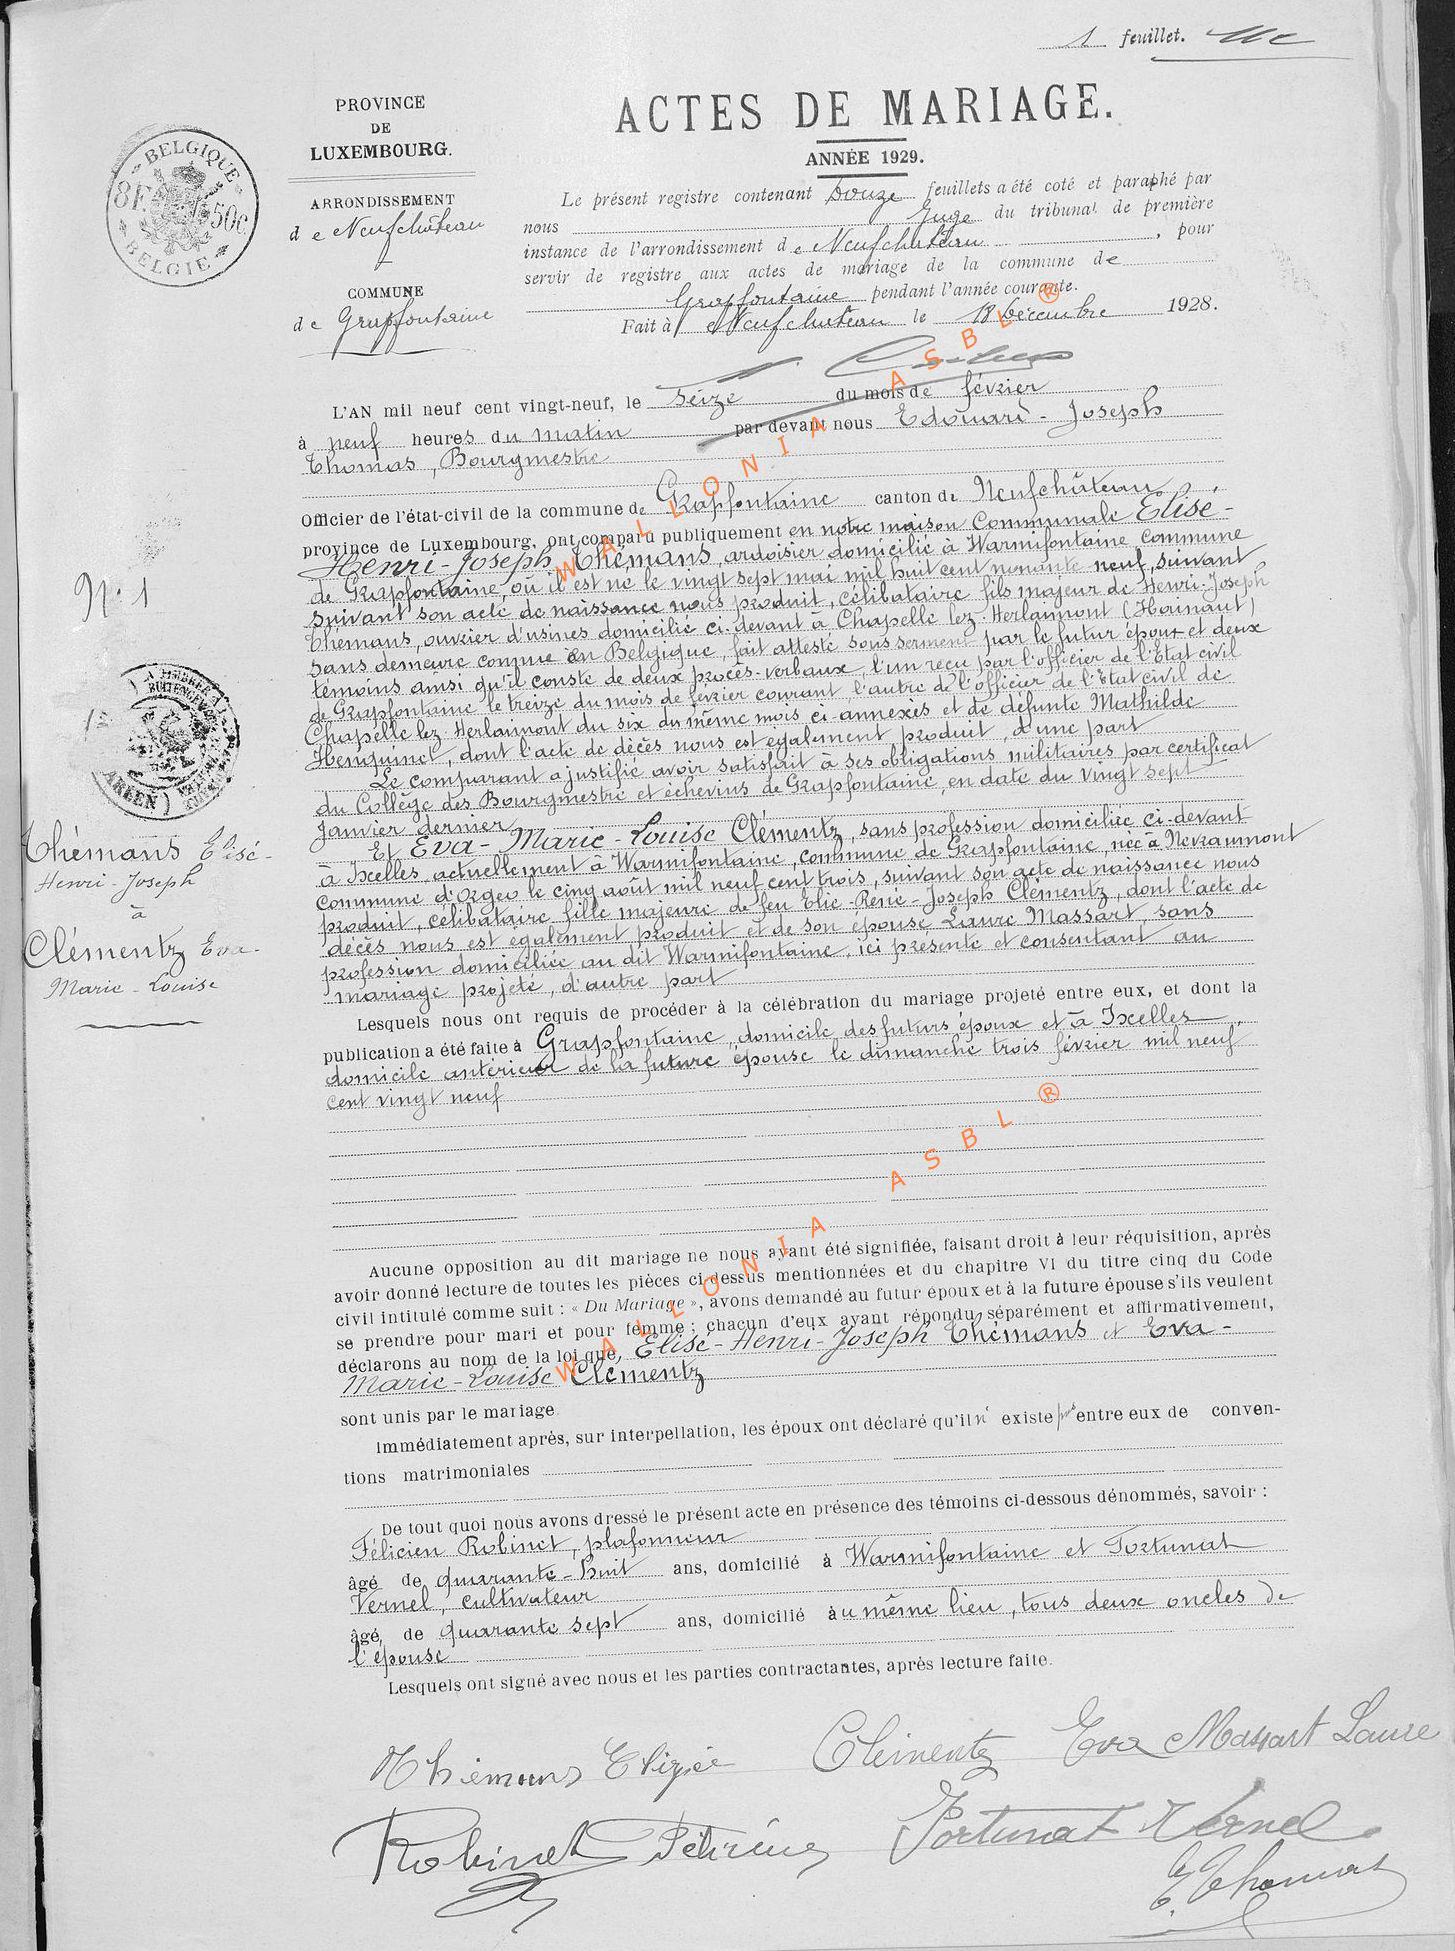 1 feuillet.
PROVINCE
DE
LUXEMBOURG.
ARRONDISSEMENT
de Neufchâteau
COMMUNE
de Grapfontaine
BELGIQUE
8F 50c
BELGIE
ACTES DE MARIAGE.
ANNÉE 1929.
Le présent registre contenant douze feuillets a été coté et paraphé par
nous Juge du tribunal de première
instance de l'arrondissement de Neufchâteau, pour
servir de registre aux actes de mariage de la commune de
Grapfontaine pendant l'année courante.
Fait à Neufchâteau le 18 décembre 1928.
L'AN mil neuf cent vingt-neuf, le seize du mois de février
à neuf heures du matin par devant nous Edouard-Joseph
Thomas, Bourgmestre
Officier de l'état-civil de la commune de Grapfontaine canton de Neufchâteau
province de Luxembourg, ont comparu publiquement en notre maison Communale Elisé-
Henri-Joseph Thémans, ardoisier domicilié à Warmifontaine commune
de Grapfontaine, où il est né le vingt sept mai mil huit cent nonante neuf, suivant
suivant son acte de naissance nous produit, célibataire fils majeur de Henri-Joseph
Thémans, ouvrier d'usines domicilié ci-devant à Chapelle lez-Herlaimont (Hainaut)
sans demeure connue en Belgique, fait attesté sous serment par le futur époux et deux
témoins ainsi qu'il conste de deux procès-verbaux, l'un reçu par l'officier de l'Etat civil
de Grapfontaine le treize du mois de février courant l'autre de l'officier de l'Etat civil de
Chapelle lez Herlaimont du six du même mois ci-annexés et de défunte Mathilde
Henquinet, dont l'acte de décès nous est également produit, d'une part
Le comparant a justifié avoir satisfait à ses obligations militaires par certificat
du Collège des Bourgmestre et échevins de Grapfontaine, en date du vingt sept
Janvier dernier
Et Eva-Marie-Louise Clémentz, sans profession domiciliée ci-devant
à Ixelles actuellement à Warmifontaine, commune de Grapfontaine, née à Nevraumont
commune d'Orgeo le cinq août mil neuf cent trois, suivant son acte de naissance nous
produit, célibataire fille majeure de feu Elie-René-Joseph Clémentz, dont l'acte de
décès nous est également produit et de son épouse Laure Massart, sans
profession domiciliée au dit Warmifontaine, ici présente et consentant au
mariage projeté, d'autre part
Lesquels nous ont requis de procéder à la célébration du mariage projeté entre eux, et dont la
publication a été faite à Grapfontaine, domicile des futurs époux et à Ixelles
domicile antérieur de la future épouse le dimanche trois février mil neuf
cent vingt neuf
Aucune opposition au dit mariage ne nous ayant été signifiée, faisant droit à leur réquisition, après
avoir donné lecture de toutes les pièces ci-dessus mentionnées et du chapitre VI du titre cinq du Code
civil intitulé comme suit : « Du Mariage », avons demandé au futur époux et à la future épouse s'ils veulent
se prendre pour mari et pour femme ; chacun d'eux ayant répondu séparément et affirmativement,
déclarons au nom de la loi que, Elisé-Henri-Joseph Thémans et Eva-
Marie-Louise Clémentz
sont unis par le mariage.
Immédiatement après, sur interpellation, les époux ont déclaré qu'il n'existe pas entre eux de conven-
tions matrimoniales
De tout quoi nous avons dressé le présent acte en présence des témoins ci-dessous dénommés, savoir :
Félicien Robinet, plafonneur
âgé de quarante-huit ans, domicilié à Warmifontaine et Fortunat
Vernel, cultivateur
âgé de quarante sept ans, domicilié au même lieu, tous deux oncles de
l'épouse
Lesquels ont signé avec nous et les parties contractantes, après lecture faite.
Thémans Elizée Clémentz Eva Massart Laure
Robinet Fortunat Vernel
E. Thomas
N° 1
Thémans Elisé-
Henri-Joseph
à
Clémentz Eva-
Marie-Louise
WALLONIA ASBL ®
WALLONIA ASBL ®